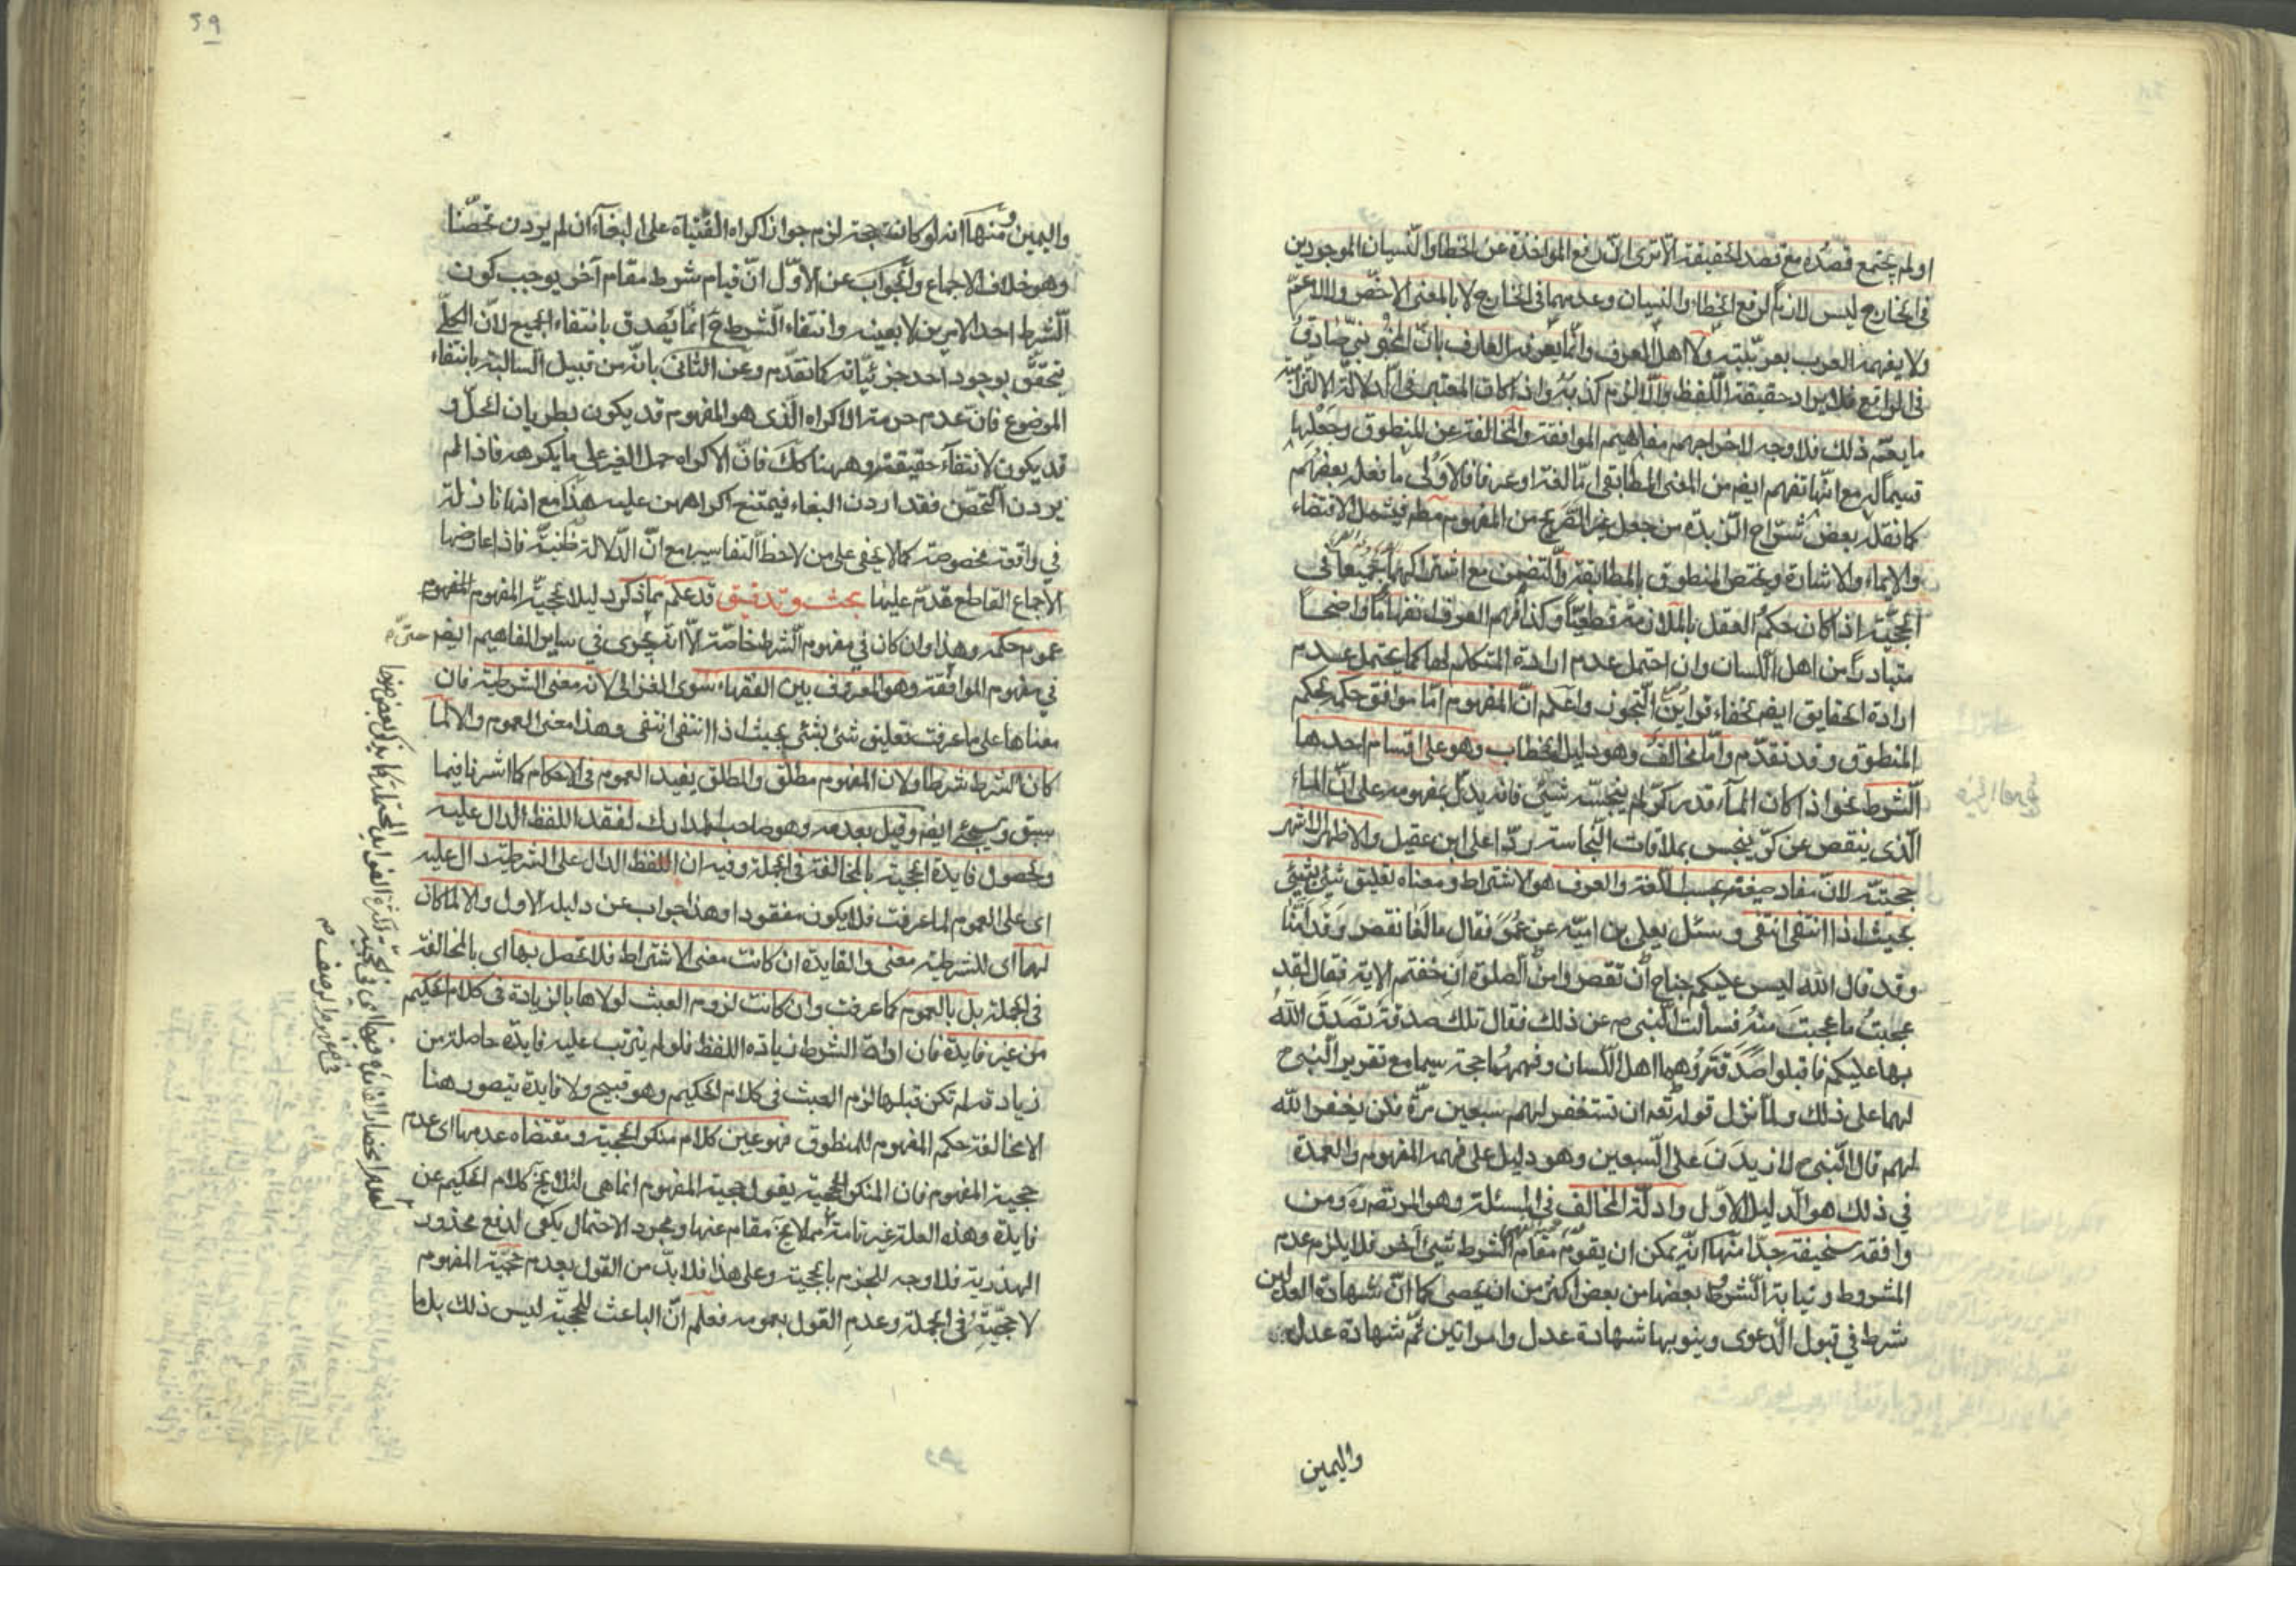 او لم يجتمع قصده مع قصد الحقيقة الا ترى ان رفع المؤاخذة عن الخطا والنسيان الموجودين
في الخارج ليس لازما لرفع الخطاء والنسيان وعدمهما في الخارج لا بالمعنى الاخص ولا الاعم
ولا يفهمه العرب بعربيته ولا اهل العرف وانما يعرفه العارف بان المخبر نبي صادق
في الواقع فلا يراد حقيقة اللفظ والا لزم كذبه واذا كان المعتبر في الدلالة الالتزامية
ما يعم ذلك فلا وجه لاخراجهم مفاهيم الموافقة والمخالفة عن المنطوق وجعلها
قسيما له مع انها تفهم ايضا من المعنى المطابقي اما لغة او عرفا فالاولى ما نقله بعضهم
كما نقله بعض شراح الزبدة من جعل غير الصريح من المفهوم مطم فيشمل الاقتضاء
والايماء والاشارة ويختص المنطوق بالمطابقة والتضمن مع اشتراكهما جميعا في
الحجية اذا كان حكم العقل بالملازمة قطعيا وكذا فهم العرف انفهاما واضحا
متبادرا من اهل اللسان وان احتمل عدم ارادة المتكلم لها كما يحتمل عدم
ارادة الحقايق ايضا لخفاء قراين التجوز واعلم ان المفهوم اما موافق حكمه لحكم
المنطوق وقد تقدم واما مخالف وهو دليل الخطاب وهو على اقسام احدها
الشرط نحو اذا كان الماء قدر كر لم ينجسه شيئ فانه يدل بمفهومه على ان الماء
الذى ينقص عن كر ينجس بملاقات النجاسة ردا على ابن عقيل والاظهر الاشهر
حجيته لان مفاد صيغته بحسب اللغة والعرف هو الاشتراط ومعناه تعليق شيئ بشيئ
بحيث اذا انتفى انتفى وسئل يعلى بن امية عن عمر فقال ما لنا نقصر وقد امنا
وقد قال الله ليس عليكم جناح ان تقصروا من الصلوة ان خفتم الاية فقال لقد
عجبت ما عجبت منه فسألت النبى ص عن ذلك فقال تلك صدقة تصدق الله
بها عليكم فاقبلوا صدقته وهما اهل اللسان وفهمهما حجة سيما مع تقرير النبى ص
لهما على ذلك ولما نزل قوله تعه ان تستغفر لهم سبعين مرة فلن يغفر الله
لهم قال النبى ص لازيدن على السبعين وهو دليل على فهمه المفهوم والعمدة
في ذلك هو الدليل الاول وادلة المخالف في المسئلة وهو المرتضى ره ومن
وافقه سخيفة جدا منها انه يمكن ان يقوم مقام الشرط شيئ آخر فلا يلزم عدم
المشروط ونيابة الشروط بعضها من بعض اكثر من ان يحصى كما ان شهادة العدلين
شرط في قبول الدعوى وينوبها شهادة عدل وامراتين ثم شهادة عدل
واليمين
59
واليمين ومنها انه لو كانت حجة لزم جواز اكراه الفتياة على البغاء ان لم يردن تحصنا
وهو خلاف الاجماع والجواب عن الاول ان قيام شرط مقام آخر يوجب كون
الشرط احد الامرين لا بعينه وانتفاء الشرط ح انما يصدق بانتفاء الجميع لان الكلى
يتحقق بوجود احد جزئياته كما تقدم وعن الثاني بانه من قبيل السالبة بانتفاء
الموضوع فان عدم حرمة الاكراه الذى هو المفهوم قد يكون بطريان المحل و
قد يكون لانتفاء حقيقة وههنا كك فان الاكراه حمل الغير على ما يكرهه فاذا لم
يردن التحصن فقد اردن البغاء فيمتنع اكراههن عليه هذا مع انها نازلة
في واقعة مخصوصة كما لا يخفى على من لاحظ التفاسير مع ان الدلالة ظنية فاذا عارضها
الاجماع القاطع قدم عليها بحث وتدقيق قد علم مما ذكر دليلا لحجية المفهوم المفهوم
عموم حكمه وهذا وان كان في مفهوم الشرط خاصة الا انه يجرى في ساير المفاهيم ايضا حتى
في مفهوم الموافقة وهو المعروف بين الفقهاء سوى الغزالى لانه معنى الشرطية فان
معناها على ما عرفت تعليق شئ بشئ بحيث اذا انتفى انتفى وهذا معنى العموم والا لما
كان الشرط شرطا ولان المفهوم مطلق والمطلق يفيد العموم في الاحكام كما اشرنا فيما
سبق وسيجئ ايضا وقيل بعدمه وهو صاحب المدارك لفقد اللفظ الدال عليه
وحصول فايدة الحجية بالمخالفة في الجملة وفيه ان اللفظ الدال على الشرطية دال عليه
اى على العموم لما عرفت فلا يكون مفقودا وهذا جواب عن دليله الاول والا لما كان
لها اى للشرطية معنى والفايدة ان كانت معنى الاشتراط فلا تحصل بها اى بالمخالفة
في الجملة بل بالعموم كما عرفت وان كانت لزوم العبث لولاها بالزيادة في كلام الحكيم
من غير فايدة فان اداة الشرط زيادة اللفظ فلو لم يترتب عليه فايدة حاصلة من
زيادة لم تكن قبلها لزم العبث في كلام الحكيم وهو قبيح ولا فايدة يتصور هنا
الا مخالفة حكم المفهوم للمنطوق فهو عين كلام منكر الحجية ومقتضاه عدمها اى عدم
حجية المفهوم فان المنكر للحجية يقول حجية المفهوم انما هى لئلا يخ كلام الحكيم عن
فايدة وهذه العلة غير تامة مما لا يخ مقام عنها ومجرد الاحتمال يكفى لدفع محذور
الهذرية فلا وجه للجزم بالحجية وعلى هذا فلا بد من القول بعدم حجية المفهوم
لا حجيته في الجملة وعدم القول بعمومه فعلم ان الباعث للحجية ليس ذلك بل ما